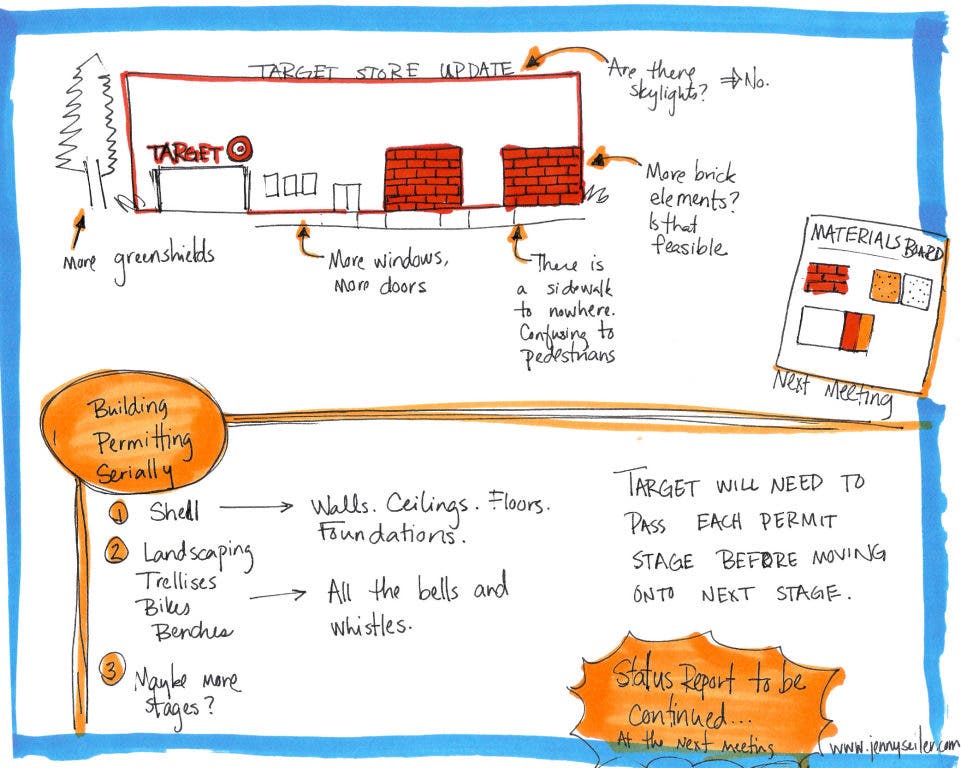 TARGET STORE UPDATE
Are there
skylights? ⇒ No.
TARGET
More brick
elements?
Is that
feasible
More greenshields
More windows,
More doors
There is
a sidewalk
to nowhere.
Confusing to
pedestrians
MATERIALS BOARD
Next Meeting
Building
Permitting
Serially
1 Shell → Walls. Ceilings. Floors.
Foundations.
2 Landscaping
Trellises
Bikes
Benches
→ All the bells and
whistles.
3 Maybe more
stages?
TARGET WILL NEED TO
PASS EACH PERMIT
STAGE BEFORE MOVING
ONTO NEXT STAGE.
Status Report to be
continued...
At the next meeting
www.jennyseiler.com